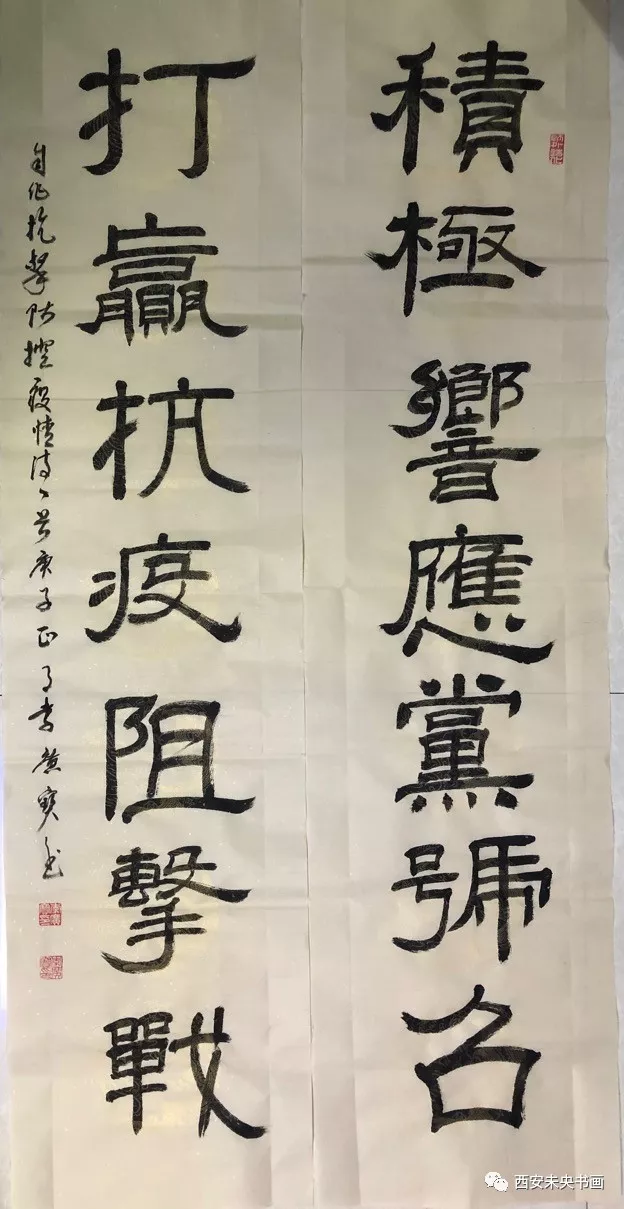 積極響應黨號召
打贏抗疫阻擊戰
自作抗擊防控疫情詩一首庚子正月書
西安未央书画